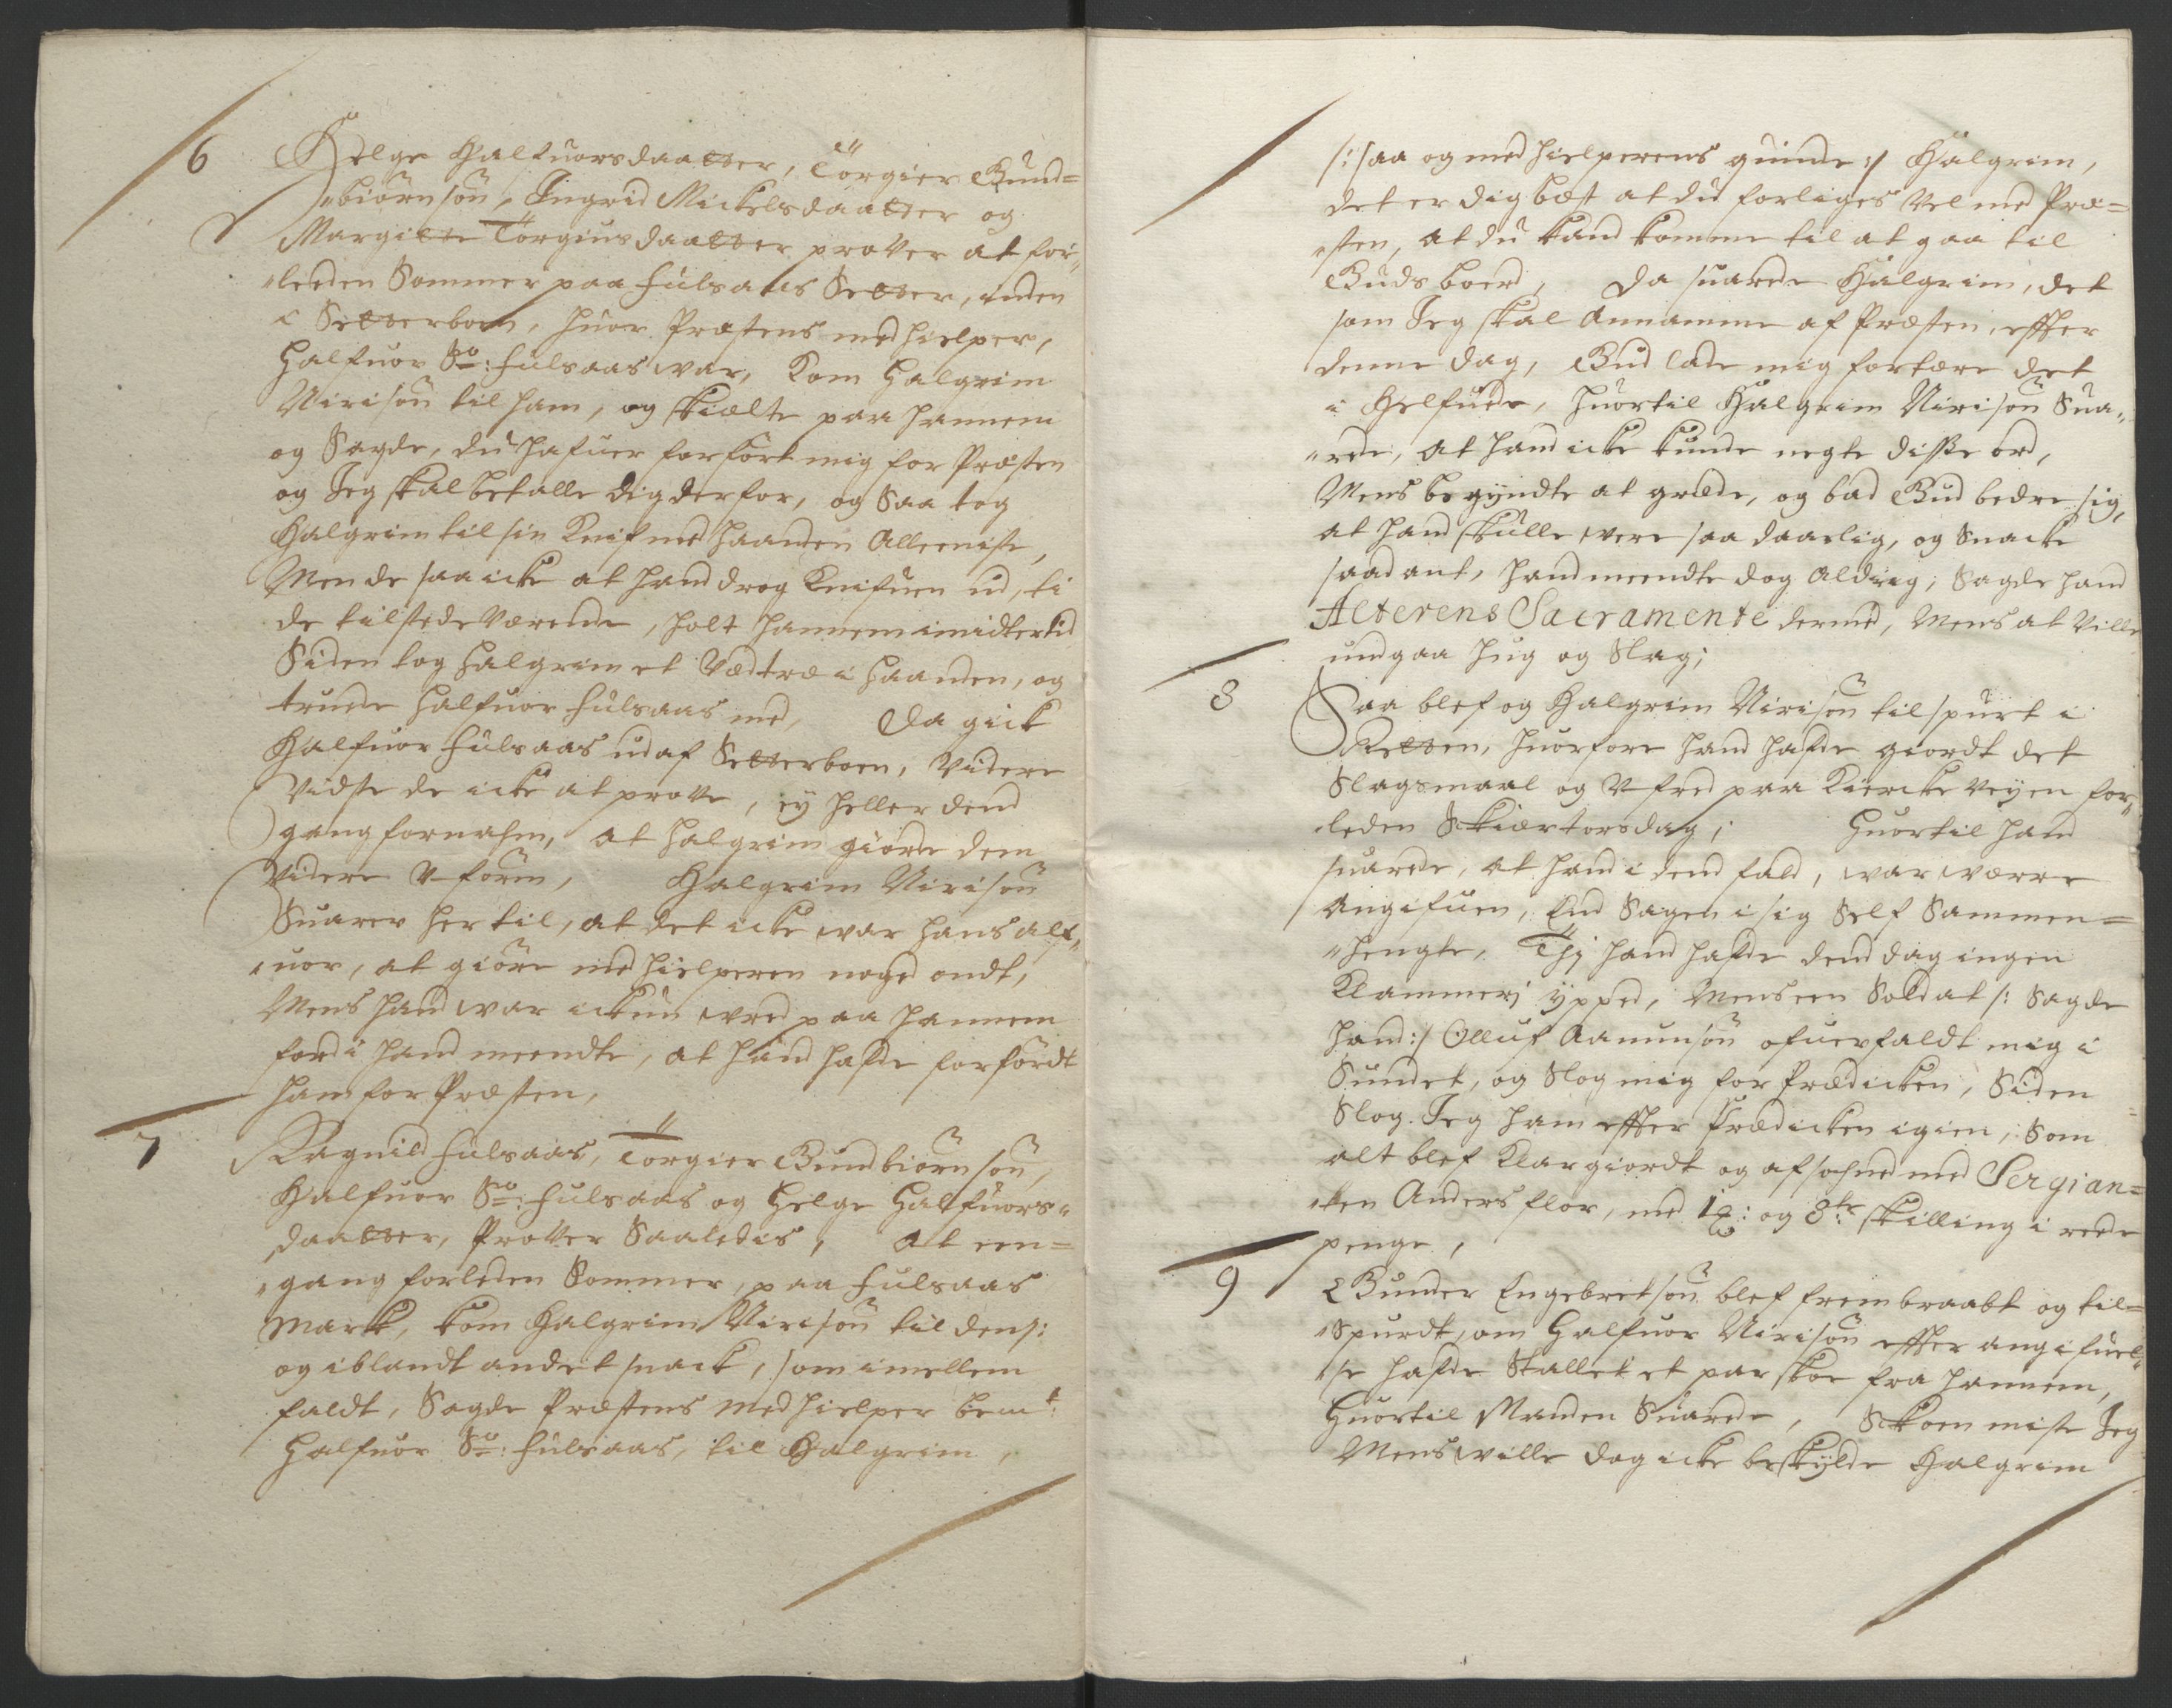 6
Helge Halfuorsdaatter, Törgier Gund=
"biörnsön, Ingrid Mickelsdaatter og
Margitte Törgiusdaatter prover at for"
"leeden Sommer paa Hulsaas Setter, inden
i Setterboen, huor Præstens medhielper,
Halfuor So: Hulsaas war, Kom Halgrim
Nirisön til ham, og skielte paa hannem
og Sagde, du hafuer forfört mig for Præsten
og Jeg skal betalle dig derfor, og Saa tog
Halgrim til sin Knif med haanden Alleeniste,
Men de saa icke at hand drog Knifuen ud, ti
de tilstedeværende, holt hannem imidlertid
Siden tog Halgrim et Vedtræ i haanden, og
truede Halfuor Hulsaas med, Da gick
Halfuor Hulsaas ud af Setterboen, Videre
Vidste de icke at prove, ey heller dend
gang fornahm, at Halgrim giörde dem
Videre V-form, Halgrim Nirisön
Suarer her til, at det icke war hans alf"
"uor, at giöre medhielperen noged ondt,
Mens hand war ickun wred paa hannem
fordi hand meendte, at hand hafde forfördt
ham for Præsten,
7
Ragnild Hulsaas, Törgier Gundbiörnsön,
Halfuor So: Hulsaas og Helge Halfuors"
daatter, Prover Saaledis, At een=
"gang forleden Sommer, paa Hulsaas
Marck, kom Halgrim Nirisön til dem:
og iblandt andet snack, som imellem
faldt, Sagde Præstens Medhielper bemt:
Halfuor So: Hulsaas, til Halgrim,
/: saa og medhielperens quinde :/ Halgrim,
det er dig best at du forliges Vel med Præ=
"sten, at du kand komme til at gaa til
Guds boerd, Da suarede Halgrim, det
som Jeg skal Annamme af Præsten, effter
denne dag, Gud lade mig fortære det
i Helfuede, huortil Halgrim Nirisön Sua"
"rede, at hand icke kunde negte disse ord,
Mens begyndte at græde, og bad Gud bedre sig,
at hand skulle were saa daarlig, og Snacke
saadant, hand meendte dog aldrig, Sagde hand
Alterens Sacramente dermed, Mens at Ville
undgaa hug og Slag;
8
Saa blef og Halgrim Nirisön tilspurt i
Retten, huorfore hand hafde giordt det
Slagsmaal og V-fred paa Kiercke Veyen for"
leden Skiertorsdag; Huortil hand
suarede, at hand i dend fald, war værre
Angifuen, End Sagen i sig Self Sammen=
"hengte, Thj hand hafde dend dag ingen
Klammerj ypped, Mens een Soldat /: Sagde
hand :/ Olluf Aamunsön ofuerfaldt mig i
Sundet, og Slog mig for Prædicken, Siden
Slog Jeg ham effter Prædicken igien, Som
alt blef Klar giordt og afsohned med Sergian=
"ten Anders flor, med 1 : og 8te skilling i rede
penge,
9
Gunder Engebretsön blef frembraabt og til=
"Spurdt, om Halfuor Nirisön effter angifuel"
"se hafde Stallet et par skoe fra hannem,
Huortil Manden Suarede, Skoen miste Jeg
Mens wille dog icke beskylde Halgrim